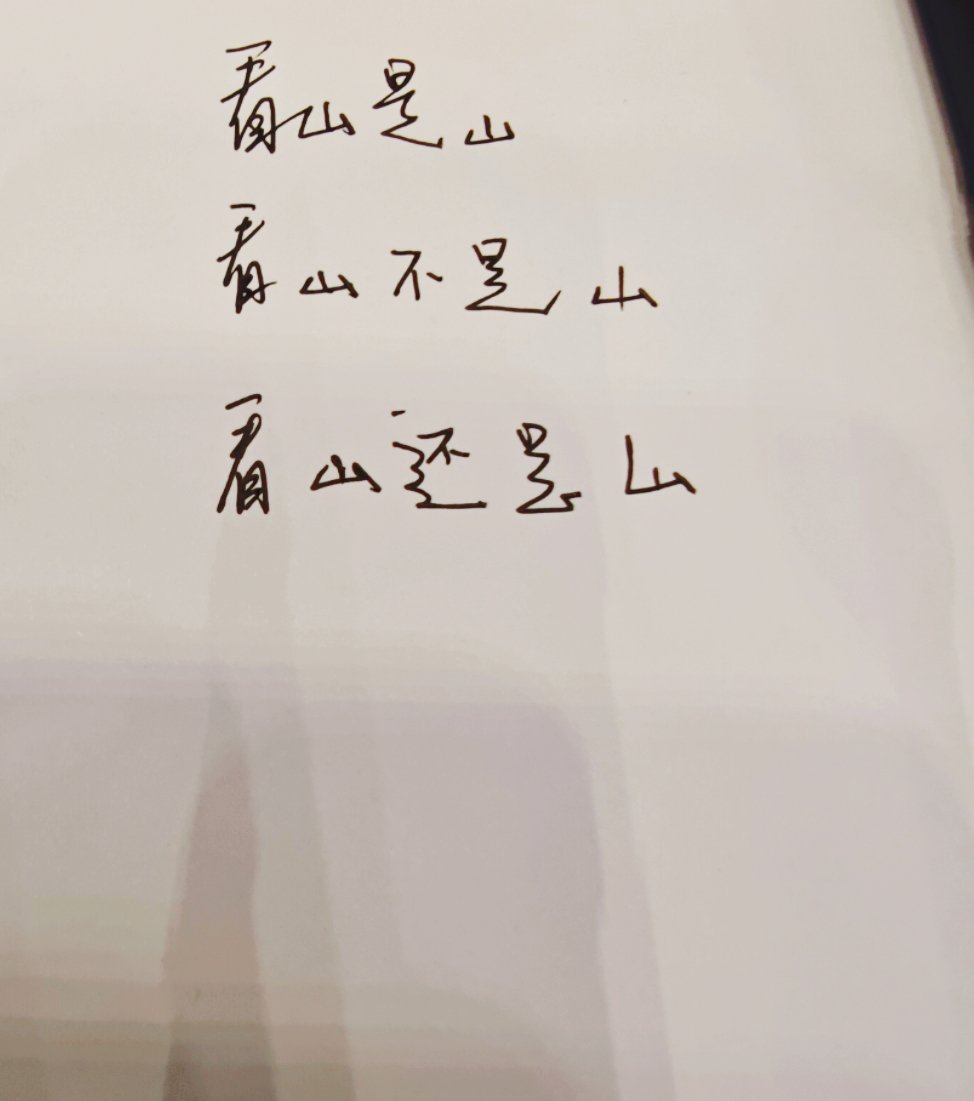 看山是山
看山不是山
看山还是山